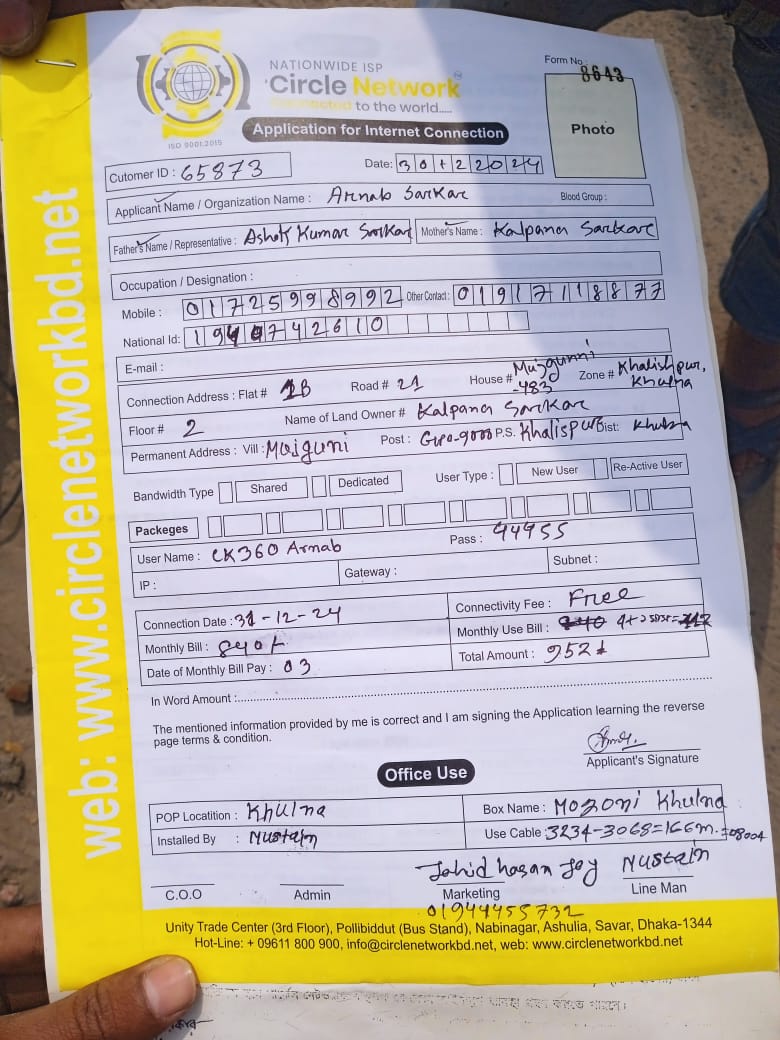 web: www.circlenetworkbd.net
NATIONWIDE ISP
Circle Network
Connected to the world.....
ISO 9001:2015
Form No 8643
Application for Internet Connection
Photo
Cutomer ID : 65873
Date: 30 12 2024
Applicant Name / Organization Name : Arnab Sarkar Blood Group :
Father's Name / Representative : Ashok Kumar Sarkar Mother's Name : Kalpana Sarkar
Occupation / Designation :
Mobile : 01725998992 Other Contact : 01917118877
National Id: 742610
E-mail :
Connection Address : Flat # 1B Road # 21 House # Mujgunni -483 Zone # Khalishpur, Khulna
Floor # 2 Name of Land Owner # Kalpana Sarkar
Permanent Address : Vill : Mujguni Post : GPO-9000 P.S. Khalispur Dist: Khulna
Bandwidth Type Shared Dedicated User Type : New User Re-Active User
Packeges
User Name : CK360 Arnab Pass : 44455
IP : Gateway : Subnet :
Connection Date : 31-12-24 Connectivity Fee : Free
Monthly Bill : 840/- Monthly Use Bill :
Date of Monthly Bill Pay : 03 Total Amount : 952/-
In Word Amount :
The mentioned information provided by me is correct and I am signing the Application learning the reverse
page terms & condition.
Applicant's Signature
Office Use
POP Locatition : Khulna Box Name : Khulna
Installed By : Mustain Use Cable : 3234-3068=166m.
Jahid hasan Joy Mustain
C.O.O Admin Marketing Line Man
01944455732
Unity Trade Center (3rd Floor), Pollibiddut (Bus Stand), Nabinagar, Ashulia, Savar, Dhaka-1344
Hot-Line: + 09611 800 900, info@circlenetworkbd.net, web: www.circlenetworkbd.net